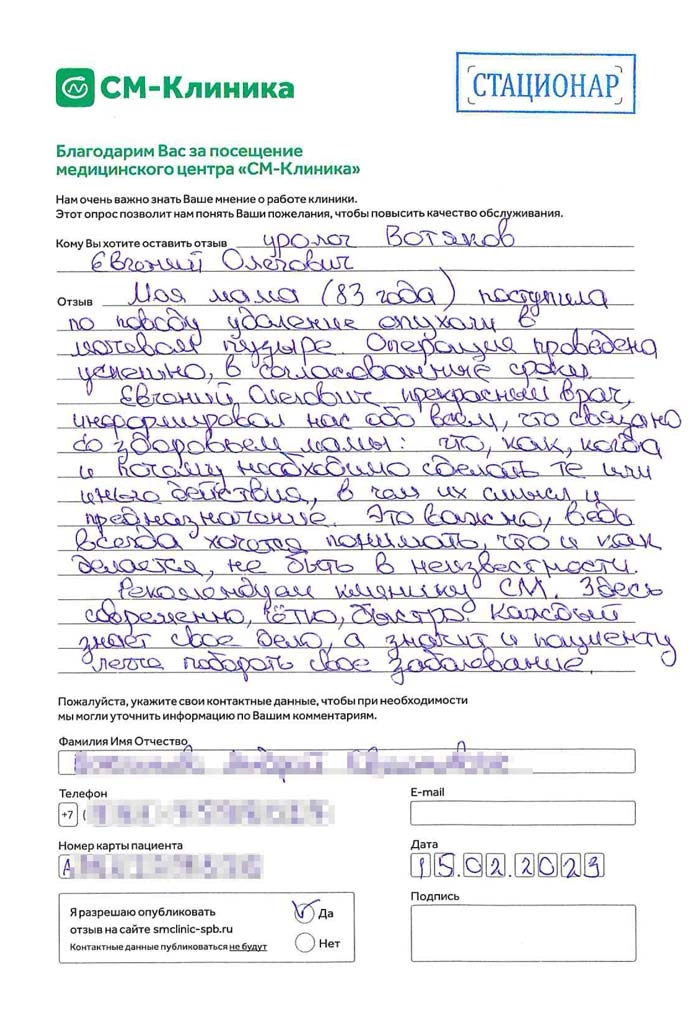 СМ-Клиника
СТАЦИОНАР
Благодарим Вас за посещение
медицинского центра «СМ-Клиника»
Нам очень важно знать Ваше мнение о работе клиники.
Этот опрос позволит нам понять Ваши пожелания, чтобы повысить качество обслуживания.
Кому Вы хотите оставить отзыв уролог Вотяков
Евгений Олегович
Отзыв Моя мама (83 года) поступила
по поводу удаление опухоли в
мочевом пузыре. Операция проведена
успешно, в согласованные сроки.
Евгений Олегович прекрасный врач,
информировал нас обо всём, что связано
со здоровьем мамы: что, как, когда
и почему необходимо сделать те или
иные действия, в чем их смысл и
предназначение. Это важно, ведь
всегда хочется понимать, что и как
делается, не быть в неизвестности.
Рекомендуем клинику СМ. Здесь
современно, чётко, быстро. Каждый
знает свое дело, а значит и пациенту
легче побороть свое заболевание.
Пожалуйста, укажите свои контактные данные, чтобы при необходимости
мы могли уточнить информацию по Вашим комментариям.
Фамилия Имя Отчество
Телефон
E-mail
+7 (
Номер карты пациента
Дата
А
15.02.2023
Подпись
Я разрешаю опубликовать
отзыв на сайте smclinic-spb.ru
Контактные данные публиковаться не будут
Да
Нет